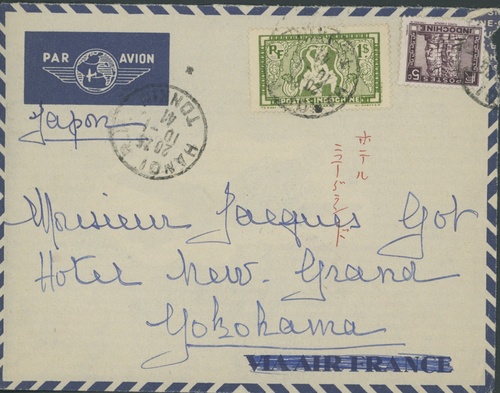 PAR AVION
RF 1$
POSTES INDOCHINE
INDOCHINE
Japon
HANOI TONKIN
2035
10-
41
ホテル
ニューグランド
Monsieur Jacques Got
Hotel New. Grand
Yokohama
VIA AIR FRANCE